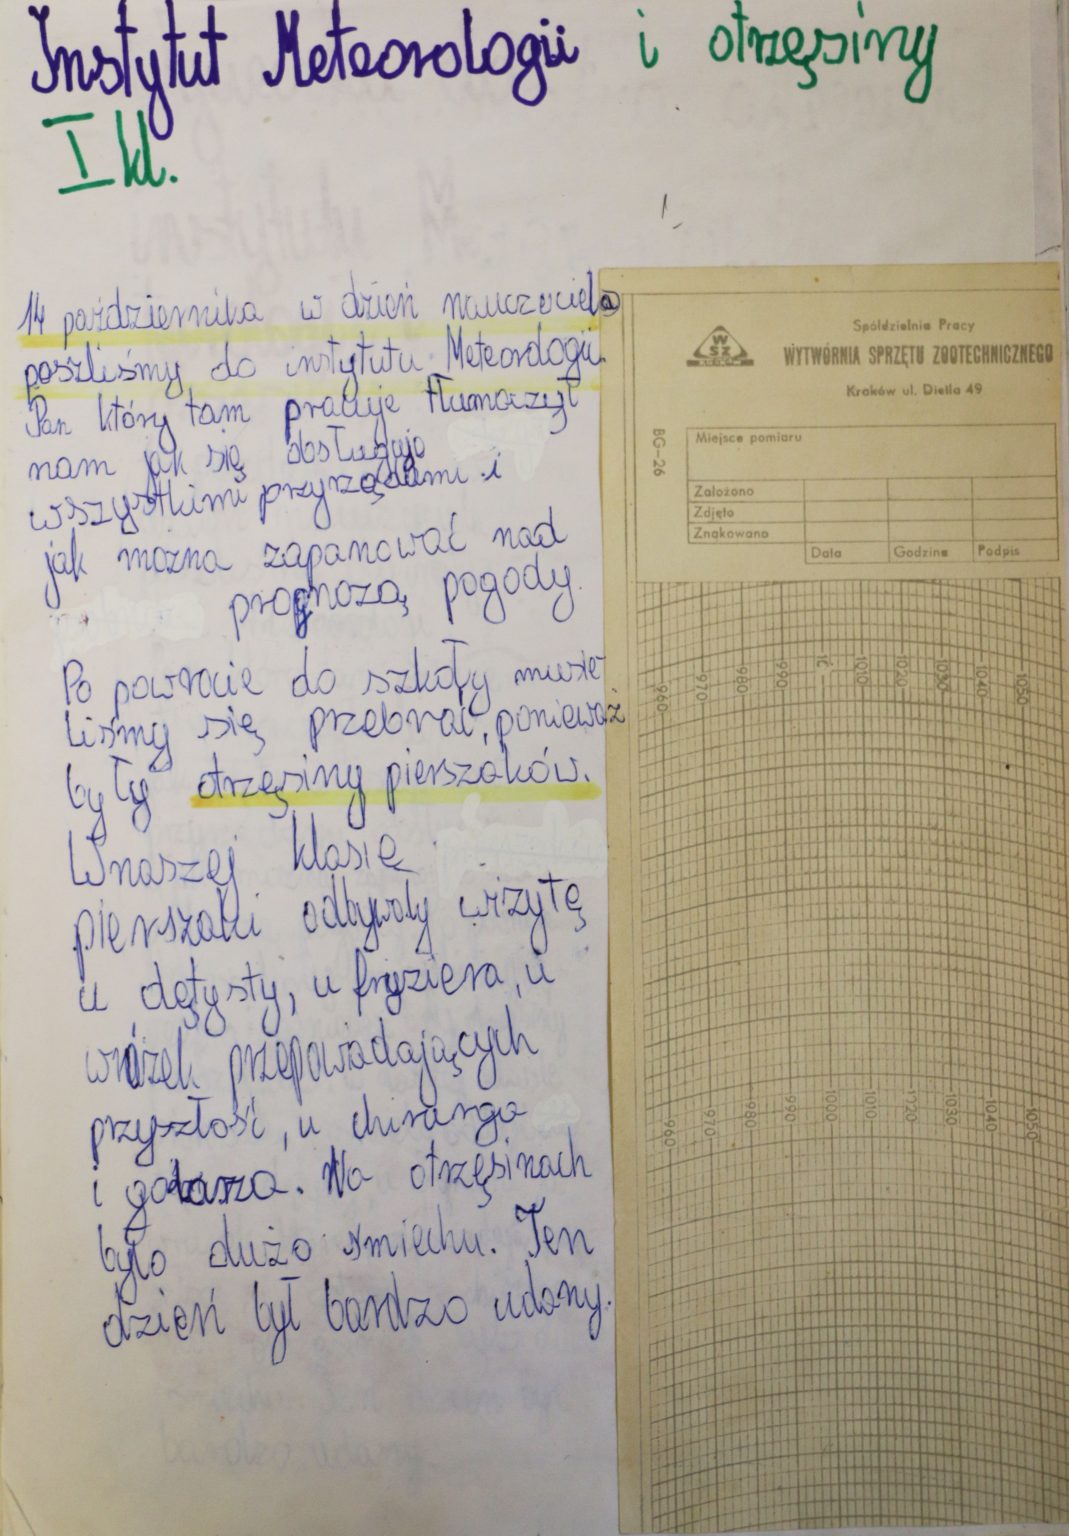 Instytut Meteorologii i otrzęsiny
I kl.
14 października w dzień nauczyciela
poszliśmy do instytutu Meteorologii.
Pan który tam pracuje tłumaczył
nam jak się
wszystkimi przyrządami i
jak można zapanować nad
prognozą pogody.
Po powrocie do szkoły musie
liśmy się przebrać, ponieważ
były otrzęsiny pierszaków.
Wnaszej klasie
pierszaki odbywały wizytę
u dętysty, u fryziera, u
wróżek przepowiadających
przyszłość, u chirurga
i . Na otrzęsinach
było dużo śmiechu. Ten
dzień był bardzo udany.
WSZ
Spółdzielnia Pracy
WYTWÓRNIA SPRZĘTU ZOOTECHNICZNEGO
Kraków ul. Dietla 49
BG-26
Miejsce pomiaru
Założono
Zdjęto
Znakowano
Data Godzina Podpis
960 970 980 990 1010 1020 1030 1040 1050
960 970 980 990 1000 1010 1030 1040 1050